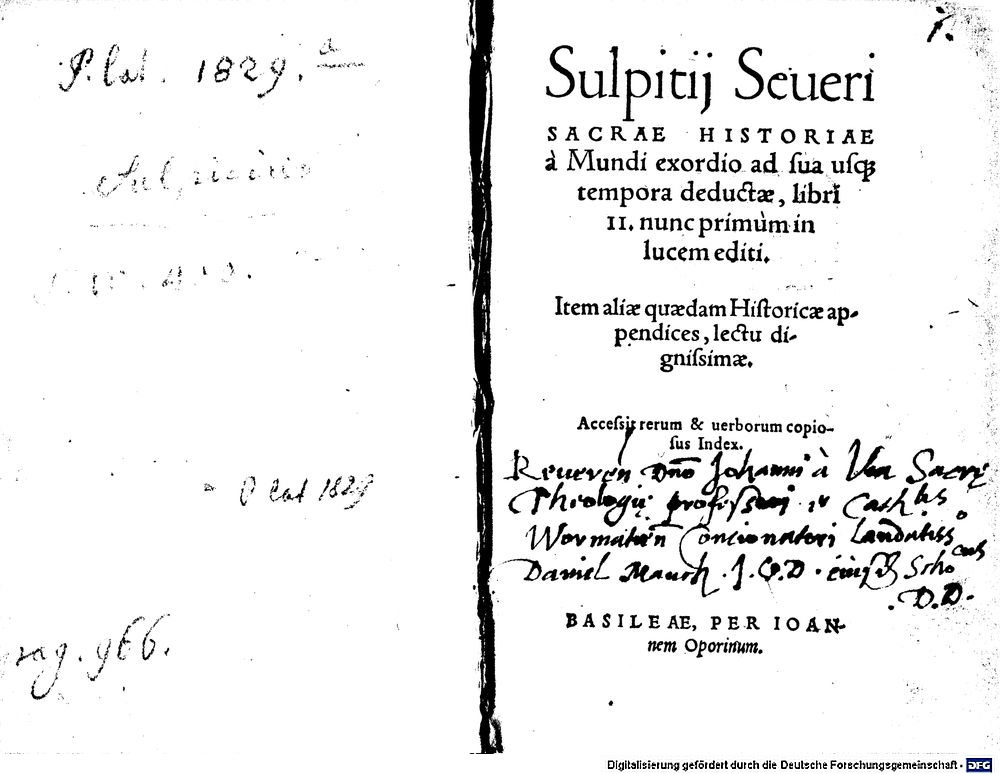 P. lat. 1829. a
Sulpicius
P lat 1829
rag. 966.
1.
Sulpitij Seueri
SACRAE HISTORIAE
à Mundi exordio ad ſua uſqꝫ
tempora deductæ, libri
II. nunc primùm in
lucem editi.
Item aliæ quædam Hiſtoricæ ap-
pendices, lectu di-
gniſsimæ.
Acceſsit rerum & uerborum copio-
ſus Index.
Reueren Dno Johanni à Via Sacrę
Theologię profeſſori et Cath lis
Wormatien Concionatori laudatiss o
Daniel Mauch . J. V. D . eiusqꝫ Scho cus
. D.D.
BASILEAE, PER IOAN-
nem Oporinum.
Digitalisierung gefördert durch die Deutsche Forschungsgemeinschaft - DFG